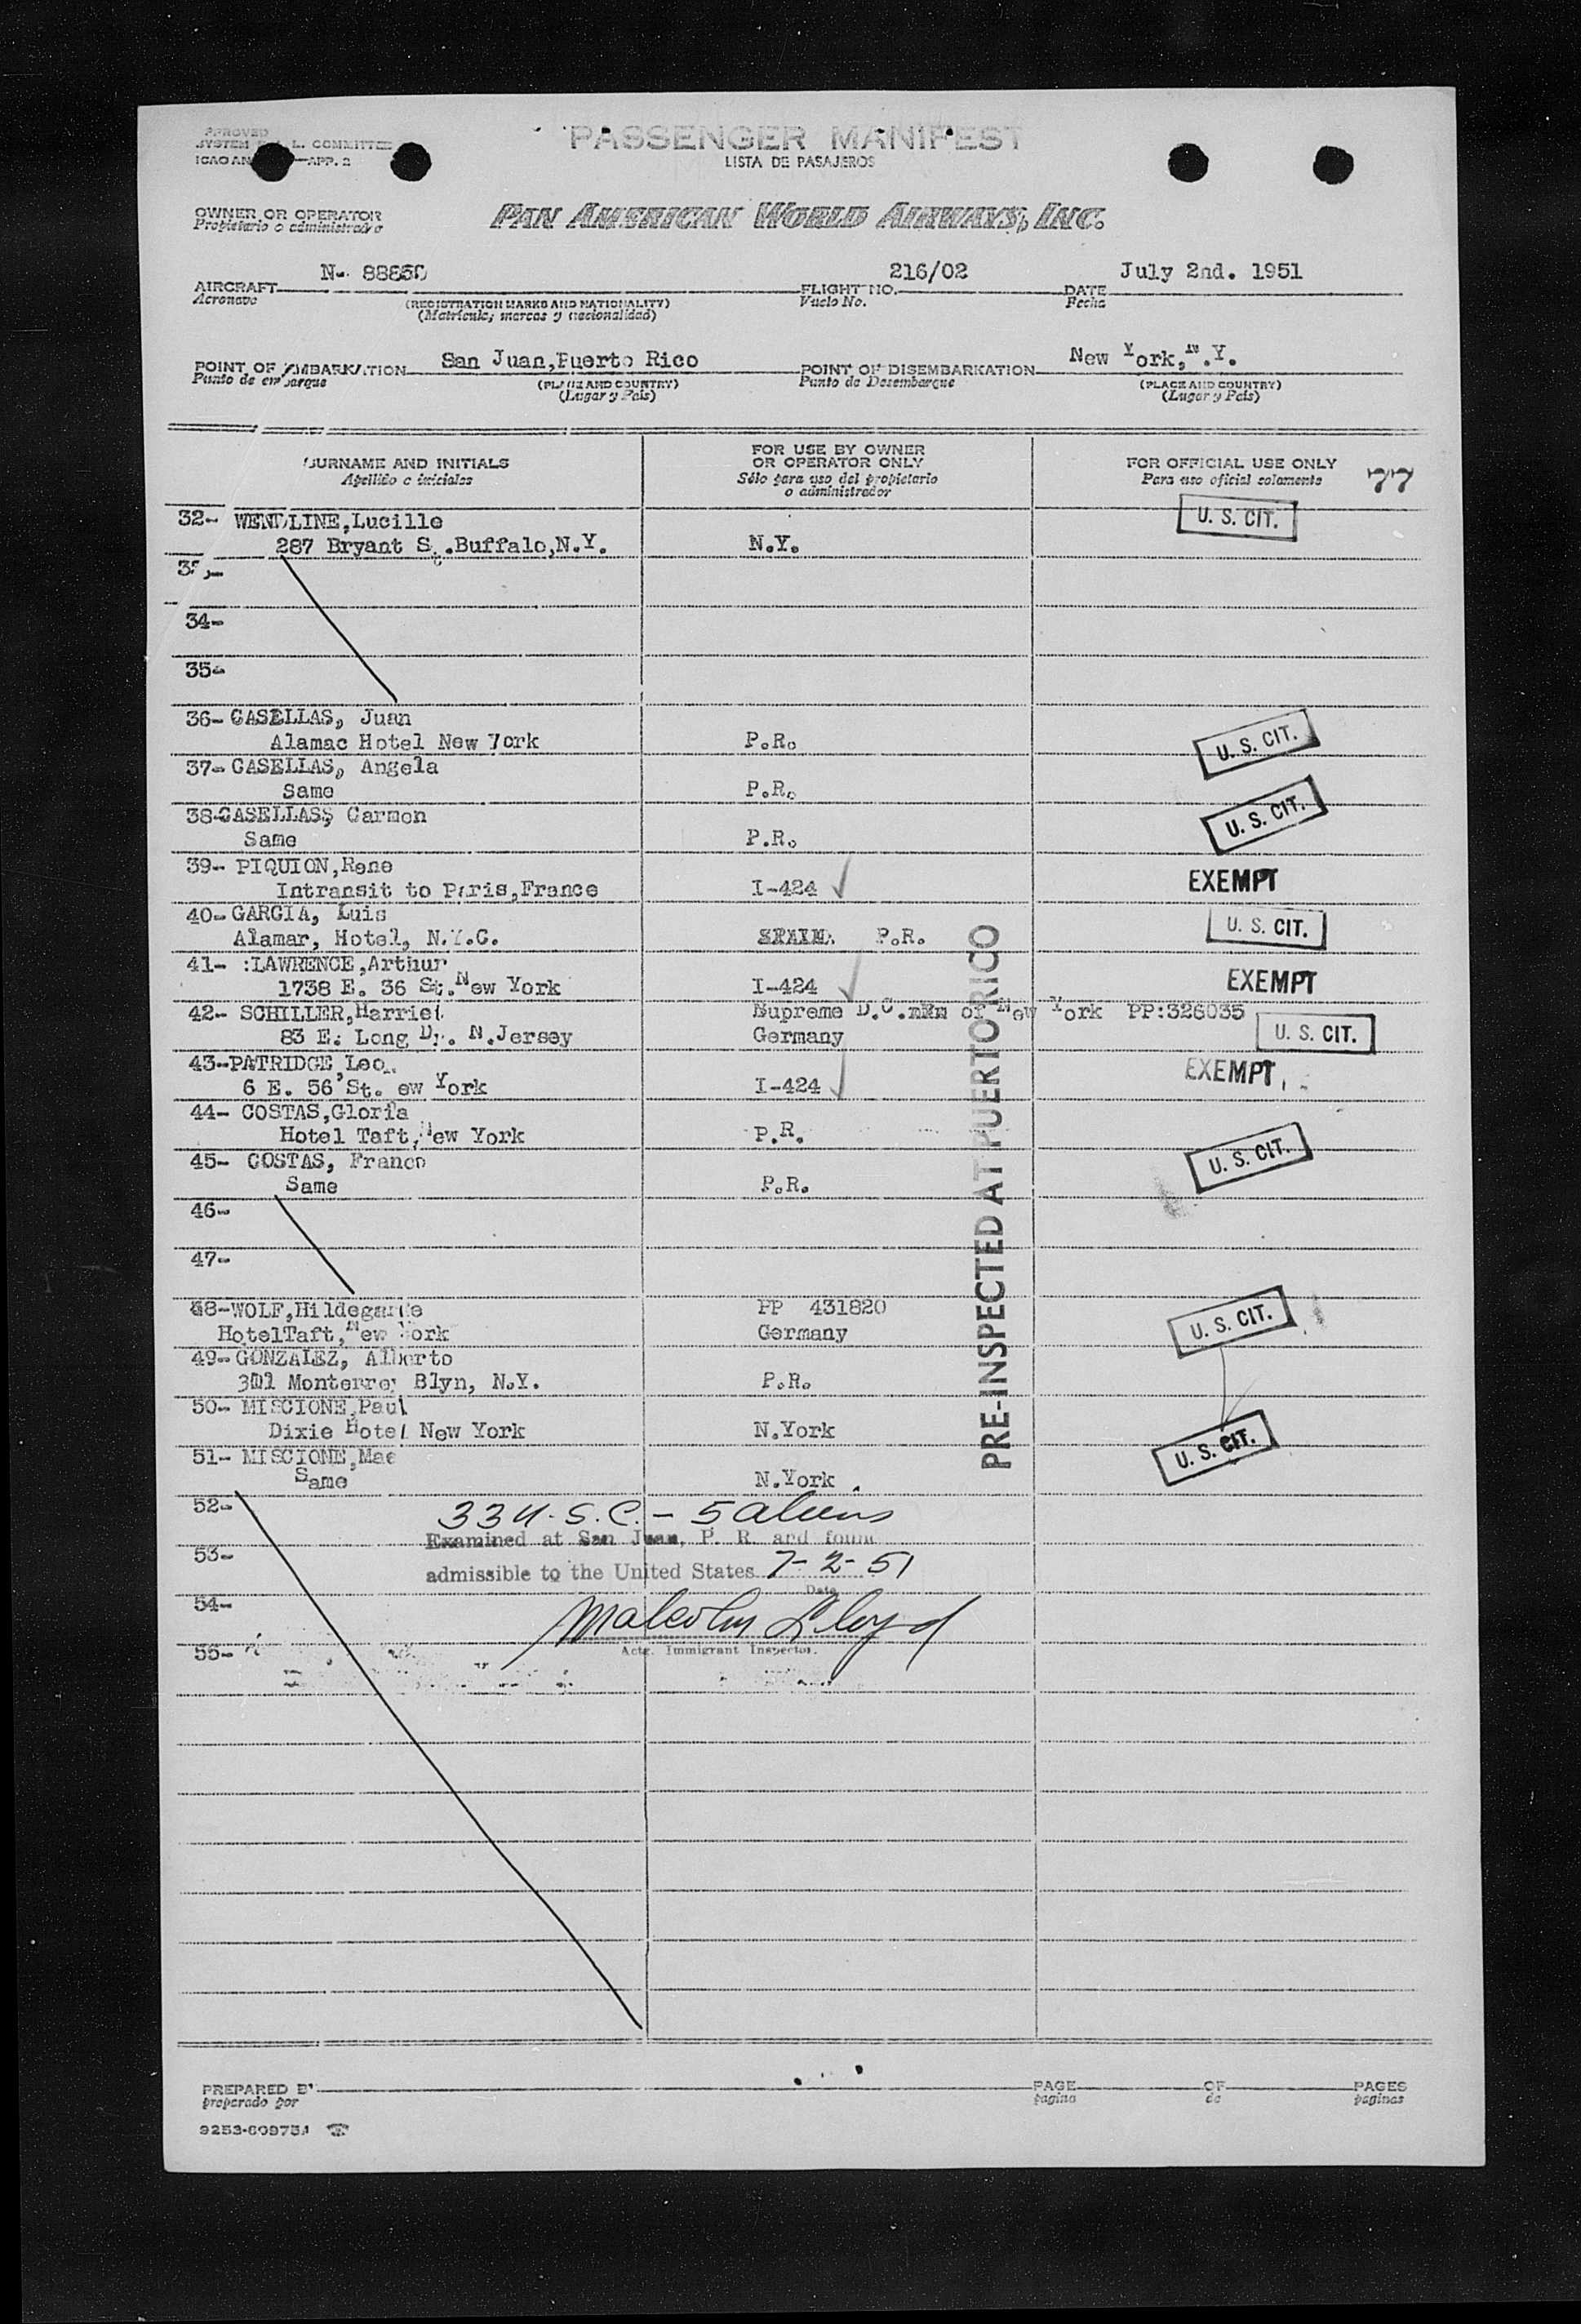 APPROVED
SYSTEM L. COMMITTEE
ICAO AN —APP. 2
PASSENGER MANIFEST
LISTA DE PASAJEROS
OWNER OR OPERATOR
Propietario o administrativo
PAN AMERICAN WORLD AIRWAYS, INC.
AIRCRAFT N. 88850 FLIGHT NO. 216/02 DATE July 2nd. 1951
Aeronave (REGISTRATION MARKS AND NATIONALITY) Vuelo No. Fecha
(Matrícula, marcas y nacionalidad)
POINT OF EMBARKATION San Juan,Puerto Rico POINT OF DISEMBARKATION New York,N.Y.
Punto de embarque (PLACE AND COUNTRY) Punto de Desembarque (PLACE AND COUNTRY)
(Lugar y País) (Lugar y País)
SURNAME AND INITIALS FOR USE BY OWNER OR OPERATOR ONLY FOR OFFICIAL USE ONLY 77
Apellido e iniciales Sólo para uso del propietario o administrador Para uso oficial solamente
32- WENDLINE,Lucille U. S. CIT.
287 Bryant St.Buffalo,N.Y. N.Y.
33-
34-
35-
36- CASELLAS, Juan
Alamac Hotel New York P.R. U. S. CIT.
37- CASELLAS, Angela
Same P.R.
38-CASELLASS Carmen U. S. CIT.
Same P.R.
39- PIQUION,Rene
Intransit to Paris,France I-424 EXEMPT
40- GARCIA, Luis
Alamar, Hotel, N.Y.C. SPAIN. P.R. U. S. CIT.
41- :LAWRENCE,Arthur
1738 E. 36 St.New York I-424 EXEMPT
42- SCHILLER,Harriet Supreme D.C. of New York PP:326035
83 E. Long Dr. N.Jersey Germany U. S. CIT.
43-PATRIDGE,Leo EXEMPT
6 E. 56 St. ew York I-424
44- COSTAS,Gloria
Hotel Taft,New York P.R.
45- COSTAS, Franco U. S. CIT.
Same P.R.
46-
47-
48-WOLF,Hildegarde PP 431820 U. S. CIT.
HotelTaft,New York Germany
49- GONZALEZ, Alberto
301 Monterrey Blyn, N.Y. P.R.
50- MISCIONE,Paul
Dixie Hotel New York N.York
51- MISCIONE,Mae U. S. CIT.
Same N.York
PRE-INSPECTED AT PUERTO RICO
52- 33 U.S.C. - 5 aliens
Examined at San Juan, P. R. and found
53- admissible to the United States 7-2-51
Date
54- Malcolm Lloyd
55- Actg. Immigrant Inspector.
PREPARED BY PAGE OF PAGES
preparado por pagina de paginas